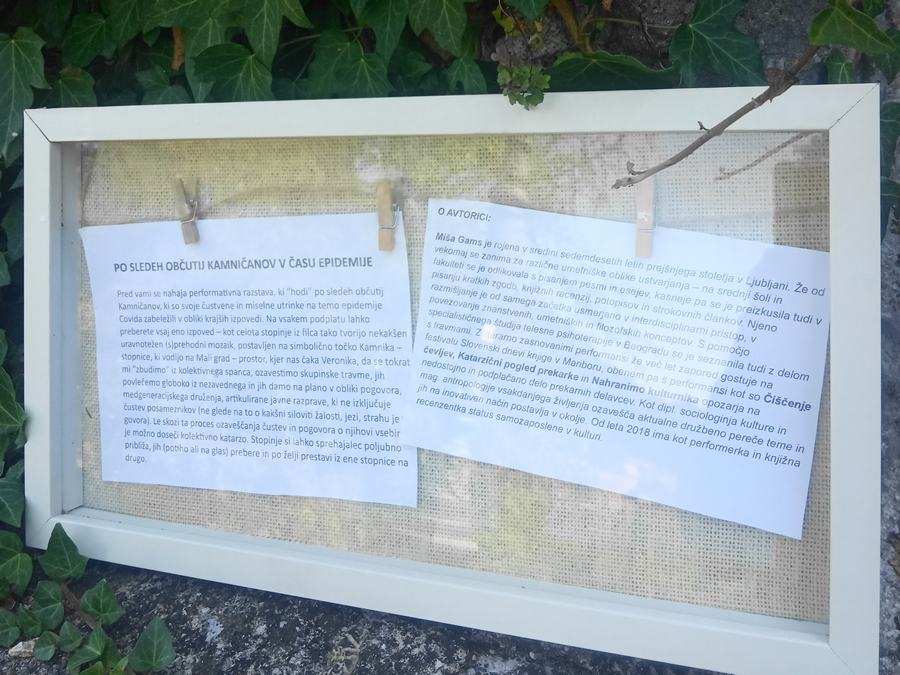 PO SLEDEH OBČUTIJ KAMNIČANOV V ČASU EPIDEMIJE
Pred vami se nahaja performativna razstava, ki "hodi" po sledeh občutij
Kamničanov, ki so svoje čustvene in miselne utrinke na temo epidemije
Covida zabeležili v obliki krajših izpovedi. Na vsakem podplatu lahko
preberete vsaj eno izpoved – kot celota stopinje iz filca tako tvorijo nekakšen
uravnotežen (s)prehodni mozaik, postavljen na simbolično točko Kamnika –
stopnice, ki vodijo na Mali grad – prostor, kjer nas čaka Veronika, da se tokrat
mi "zbudimo" iz kolektivnega spanca, ozavestimo skupinske travme, jih
povlečemo globoko iz nezavednega in jih damo na plano v obliki pogovora,
medgeneracijskega druženja, artikulirane javne razprave, ki ne izključuje
čustev posameznikov (ne glede na to o kakšni siloviti žalosti, jezi, strahu je
govora). Le skozi ta proces ozaveščanja čustev in pogovora o njihovi vsebini
je možno doseči kolektivno katarzo. Stopinje si lahko sprehajalec poljubno
približa, jih (potiho ali na glas) prebere in po želji prestavi iz ene stopnice na
drugo.
O AVTORICI:
Miša Gams je rojena v sredini sedemdesetih letih prejšnjega stoletja v Ljubljani. Že od
vekomaj se zanima za različne umetniške oblike ustvarjanja – na srednji šoli in
fakulteti se je odlikovala s pisanjem pesmi in esejev, kasneje pa se je preizkusila tudi v
pisanju kratkih zgodb, knjižnih recenzij, potopisov in strokovnih člankov. Njeno
razmišljanje je od samega začetka usmerjeno v interdisciplinarni pristop, v
povezovanje znanstvenih, umetniških in filozofskih konceptov. S pomočjo
specialističnega študija telesne psihoterapije v Beogradu se je seznanila tudi z delom
s travmami. Z zasnovanim performansi že več let zapored gostuje na
festivalu Slovenski dnevi knjige v Mariboru, obenem pa s performansi kot so Čiščenje
čevljev, Katarzični pogled prekarke in Nahranimo kulturnika opozarja na
nedostojno in podplačano delo prekarnih delavcev. Kot dipl. sociologinja kulture in
mag. antropologije vsakdanjega življenja ozavešča aktualne družbeno pereče teme in
jih na inovativen način postavlja v okolje. Od leta 2018 ima kot performerka in knjižna
recenzentka status samozaposlene v kulturi.